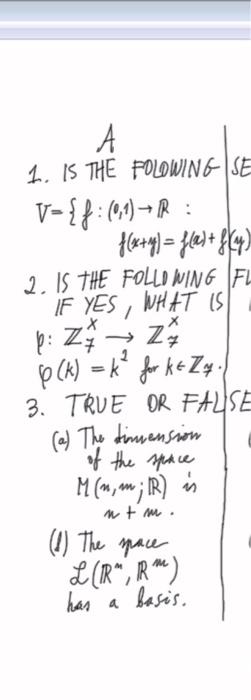 A
1. IS THE FOLOWING SE
V = { f : (0,1) → ℝ :
f(x+y) = f(x) + f(y)
2. IS THE FOLLOWING FU
IF YES, WHAT IS
φ: ℤ₇ˣ → ℤ₇ˣ
φ(k) = k² for k ∈ ℤ₇.
3. TRUE OR FALSE
(a) The dimension
of the space
M(n,m;ℝ) is
n + m.
(b) The space
ℒ(ℝⁿ, ℝᵐ)
has a basis.